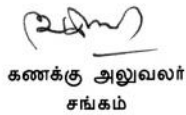 கணக்கு அலுவலர்
சங்கம்